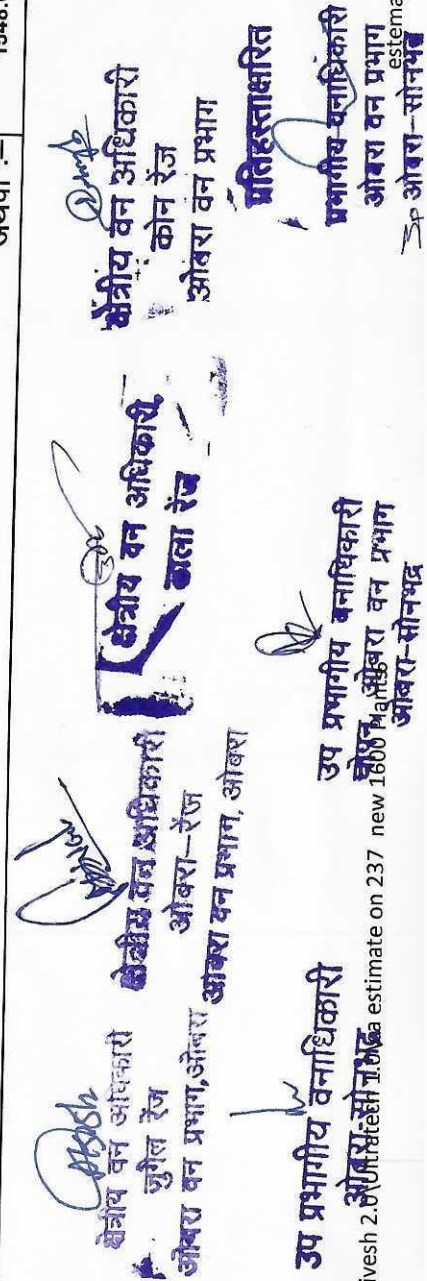 अथवा :-
क्षेत्रीय वन अधिकारी
जुगैल रेंज
ओबरा वन प्रभाग,ओबरा
क्षेत्रीय वन अधिकारी
ओबरा-रेंज
ओबरा वन प्रभाग, ओबरा
क्षेत्रीय वन अधिकारी
डाला रेंज
क्षेत्रीय वन अधिकारी
कोन रेंज
ओबरा वन प्रभाग
उप प्रभागीय वनाधिकारी
ओबरा-सोनभद्र
उप प्रभागीय वनाधिकारी
चोपन, ओबरा वन प्रभाग
ओबरा-सोनभद्र
प्रतिहस्ताक्षरित
प्रभागीय वनाधिकारी
ओबरा वन प्रभाग
ओबरा-सोनभद्र
ivesh 2.0\Ultratech 1.0 ha estimate on 237 new 1600 Plants
estema